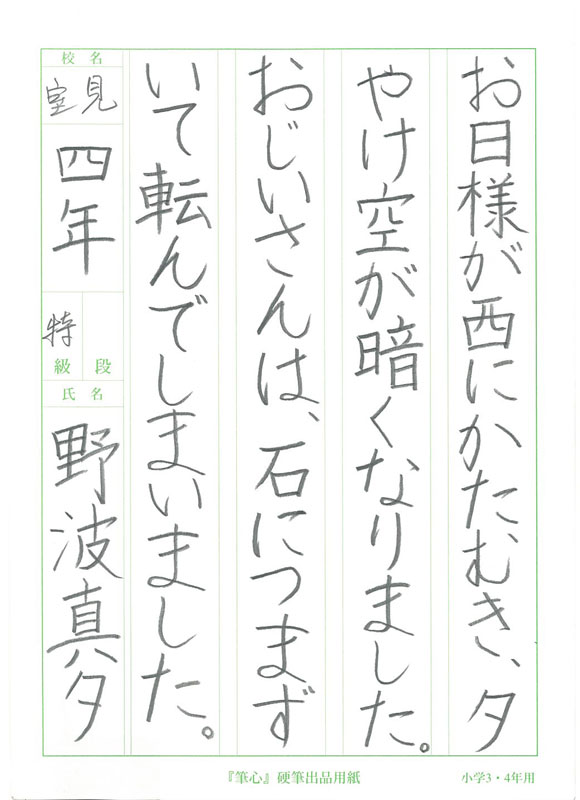 お日様が西にかたむき、夕
やけ空が暗くなりました。
おじいさんは、石につまず
いて転んでしまいました。
校名
室見
四年
特
級 段
氏名
野波真夕
『筆心』硬筆出品用紙
小学3・4年用